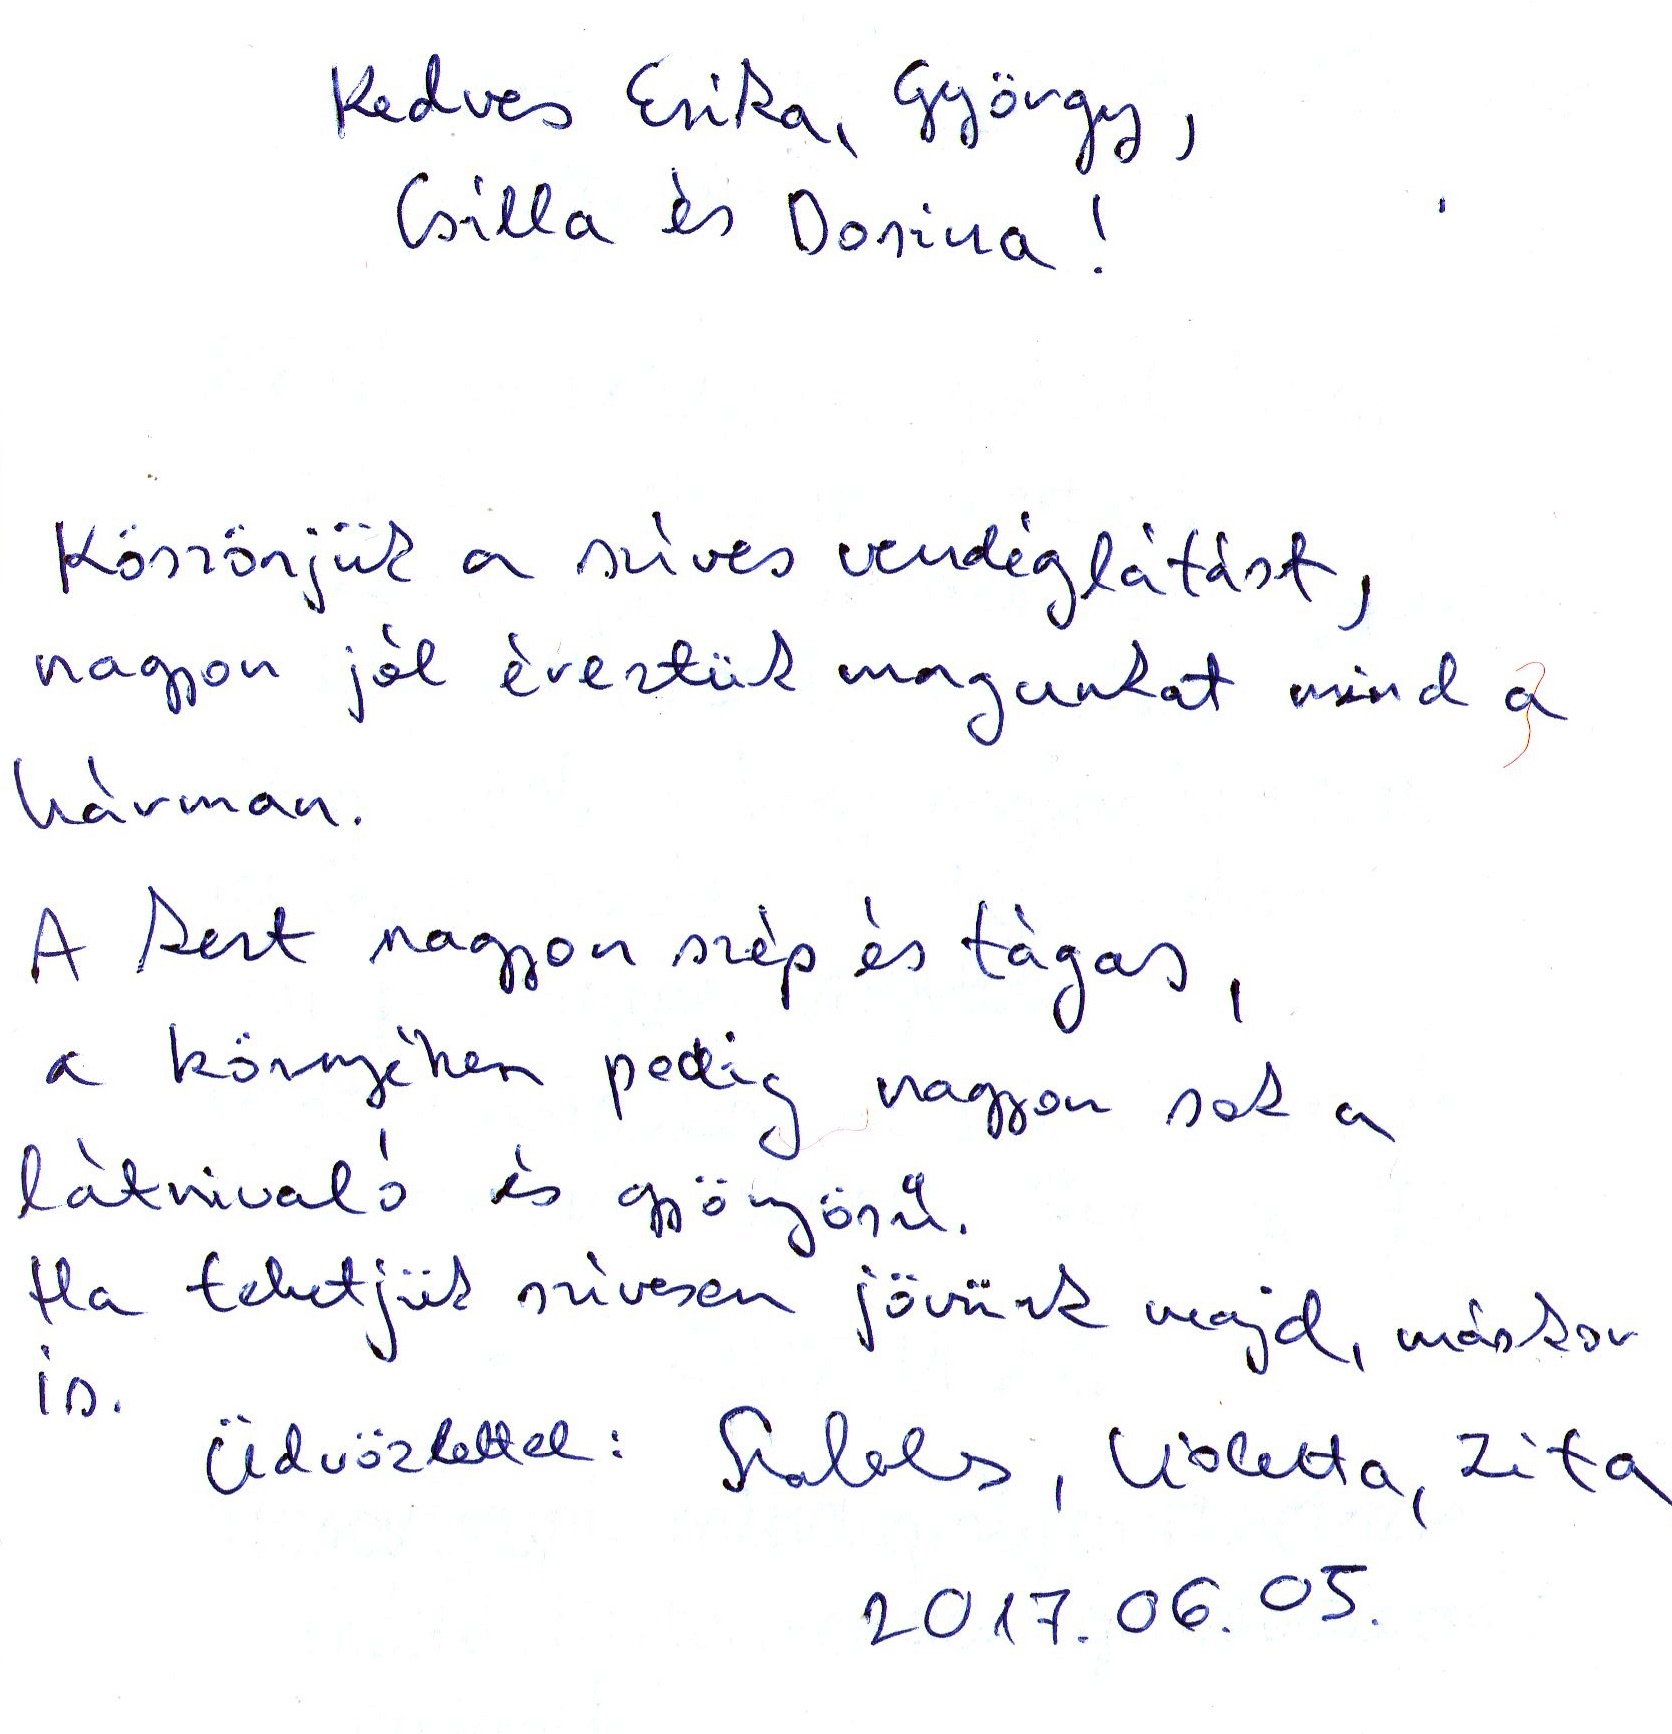 Kedves Erika, György,
Csilla és Dorina!
Köszönjük a szíves vendéglátást,
nagyon jól éreztük magunkat mind a
hárman.
A kert nagyon szép és tágas,
a környéken pedig nagyon sok a
látnivaló és gyönyörű.
Ha tehetjük szívesen jövünk majd, máskor
is.
Üdvözlettel: Szabolcs, Violetta, Zita
2017.06.05.